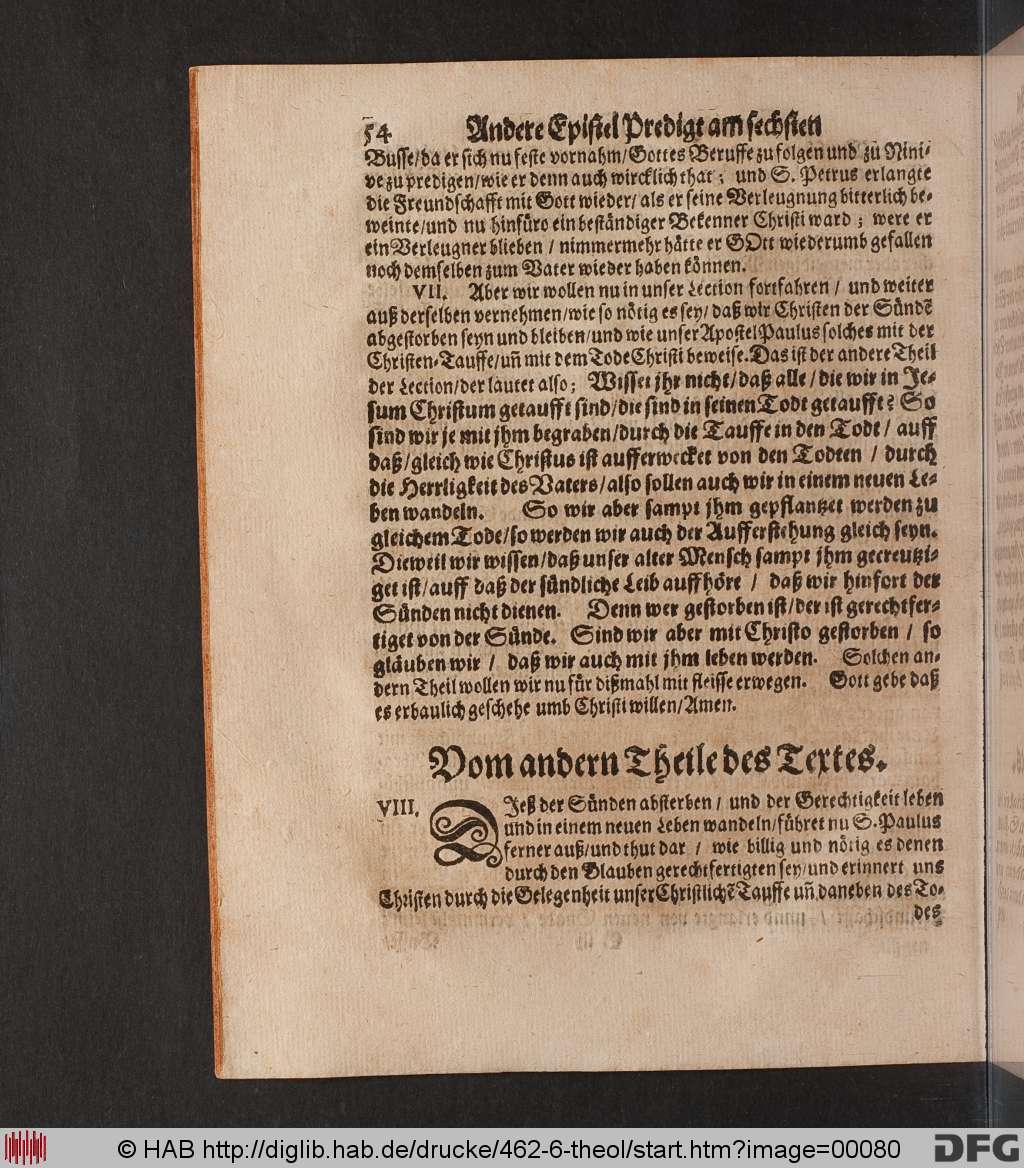 54 Andere Epistel Predigt am sechsten
Busse/da er sich nu feste vornahm/Gottes Beruffe zu folgen und zu Nini-
ve zu predigen/wie er denn auch wircklich that; und S. Petrus erlangte
die Freundschafft mit Gott wieder/als er seine Verleugnung bitterlich be-
weinte/und nu hinfüro ein beständiger Bekenner Christi ward; were er
ein Verleugner blieben / nimmermehr hätte er GOtt wiederumb gefallen
noch demselben zum Vater wieder haben können.
VII. Aber wir wollen nu in unser Lection fortfahren / und weiter
auß derselben vernehmen/wie so nötig es sey/daß wir Christen der Sündẽ
abgestorben seyn und bleiben/und wie unser Apostel Paulus solches mit der
Christen-Tauffe/uñ mit dem Tode Christi beweise. Das ist der andere Theil
der Lection/der lautet also; Wisset jhr nicht/daß alle/die wir in Je-
sum Christum getaufft sind/die sind in seinen Todt getaufft? So
sind wir je mit jhm begraben/durch die Tauffe in den Todt / auff
daß/gleich wie Christus ist aufferwecket von den Todten / durch
die Herrligkeit des Vaters/also sollen auch wir in einem neuen Le-
ben wandeln. So wir aber sampt jhm gepflantzet werden zu
gleichem Tode/so werden wir auch der Aufferstehung gleich seyn.
Dieweil wir wissen/daß unser alter Mensch sampt jhm gecreutzi-
get ist/auff daß der sündliche Leib auffhöre / daß wir hinfort der
Sünden nicht dienen. Denn wer gestorben ist/der ist gerechtfer-
tiget von der Sünde. Sind wir aber mit Christo gestorben / so
gläuben wir / daß wir auch mit jhm leben werden. Solchen an-
dern Theil wollen wir nu für dißmahl mit fleisse erwegen. Gott gebe daß
es erbaulich geschehe umb Christi willen/Amen.
Vom andern Theile des Textes.
VIII. DJeß der Sünden absterben / und der Gerechtigkeit leben
und in einem neuen Leben wandeln/führet nu S. Paulus
ferner auß/und thut dar / wie billig und nötig es denen
durch den Glauben gerechtfertigten sey/und erinnert uns
Christen durch die Gelegenheit unser Christlichẽ Tauffe uñ daneben des To-
des
© HAB http://diglib.hab.de/drucke/462-6-theol/start.htm?image=00080
DFG